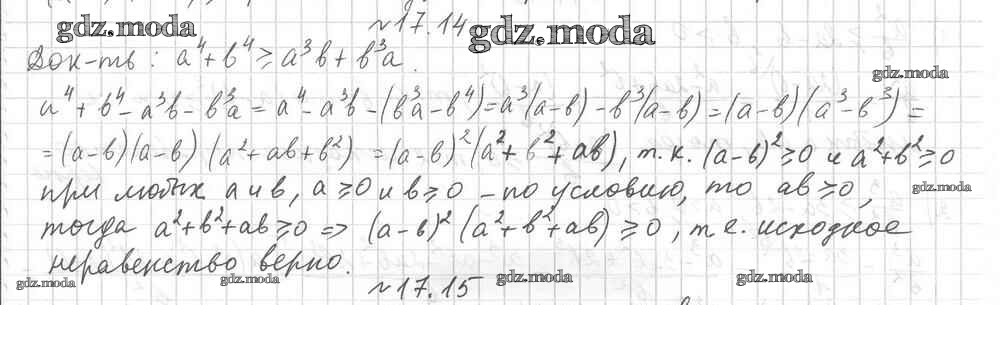 gdz.moda
№17.14
gdz.moda
Док-ть: a⁴+b⁴≥a³b+b³a.
gdz.moda
a⁴+b⁴-a³b-b³a=a⁴-a³b-(b³a-b⁴)=a³(a-b)-b³(a-b)=(a-b)(a³-b³)=
=(a-b)(a-b)(a²+ab+b²)=(a-b)²(a²+b²+ab), т.к. (a-b)²≥0 и a²+b²≥0
при любых a и b, a≥0 и b≥0 - по условию, то ab≥0,
gdz.moda
тогда a²+b²+ab≥0 => (a-b)²(a²+b²+ab)≥0, т.е. исходное
неравенство верно.
gdz.moda
gdz.moda
№17.15
gdz.moda
gdz.moda